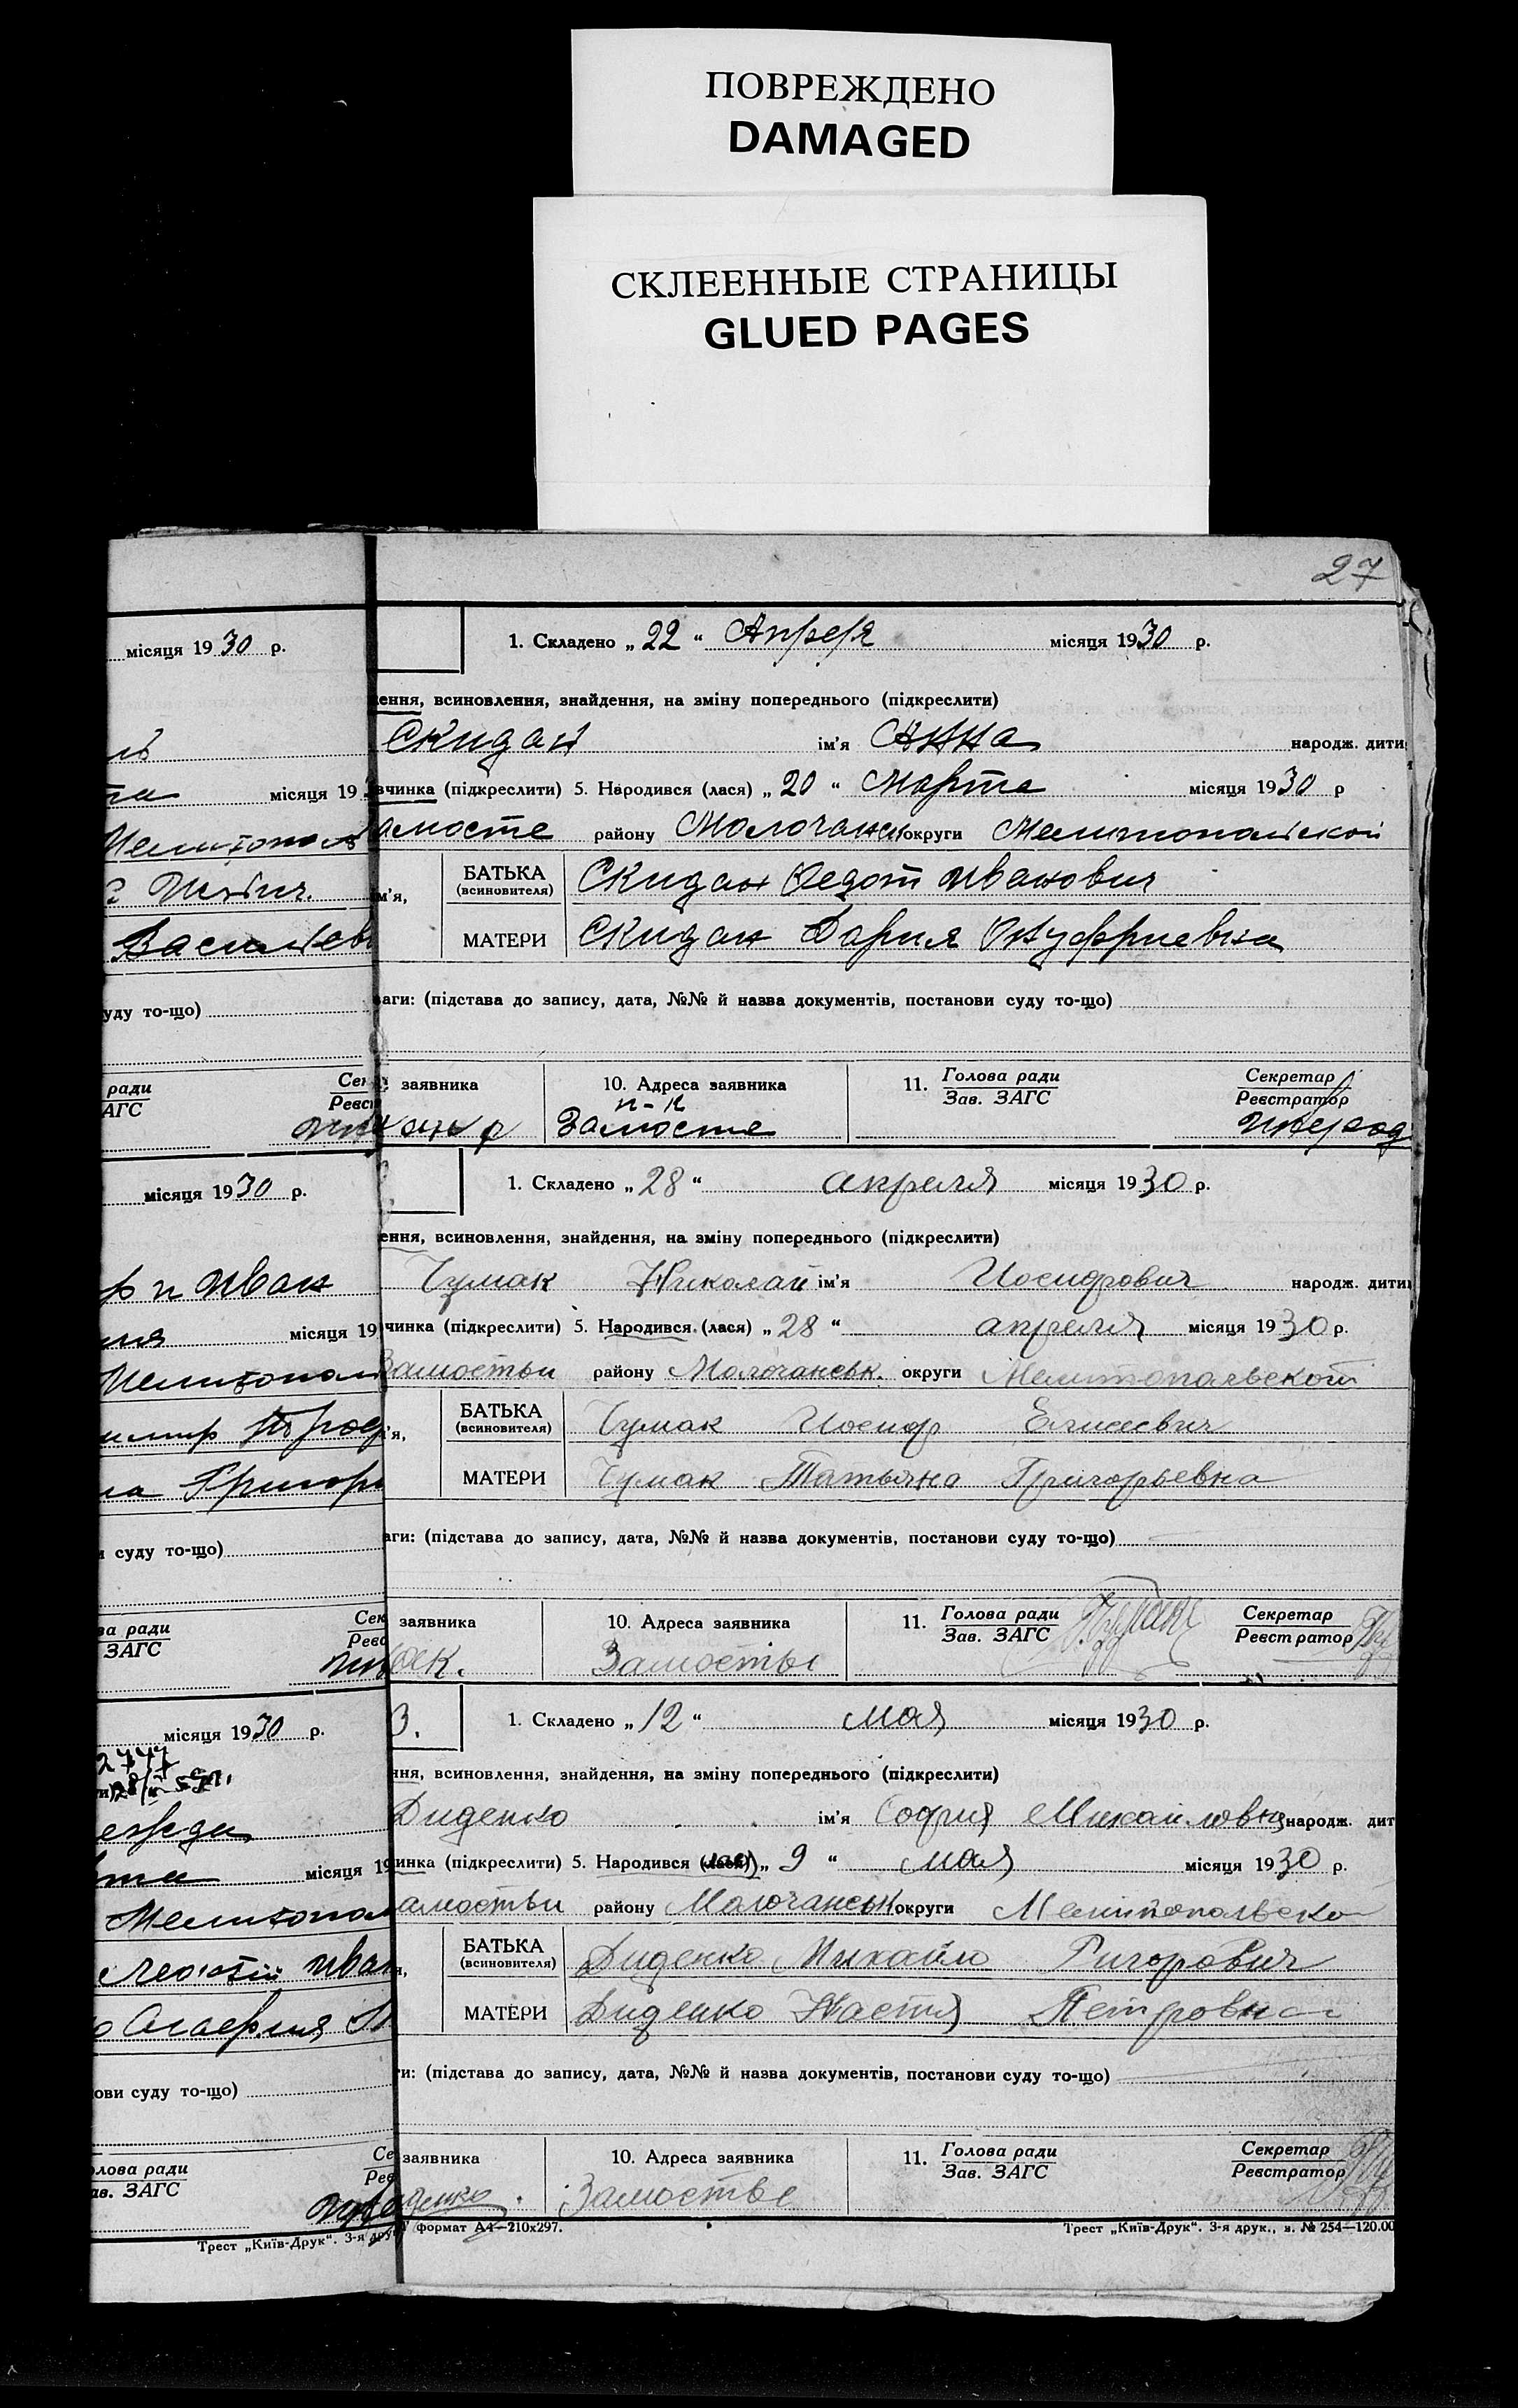 ПОВРЕЖДЕНО
DAMAGED
СКЛЕЕННЫЕ СТРАНИЦЫ
GLUED PAGES
27
місяця 1930 р.
місяця 19
Мелитопол
Василиев
уду то-що)
ради
АГС
місяця 1930 р.
р и Иван
місяця 19
Мелитопол
на Григор
суду то-що)
ва ради
ЗАГС
місяця 1930 р.
2747
місяця 19
Мелитопол
ови суду то-що)
олова ради
ав. ЗАГС
Трест „Київ-Друк“. 3-я друк
1. Складено „ 22 “ Апреля місяця 1930 р.
ення, всиновлення, знайдення, на зміну попереднього (підкреслити)
Скидан ім’я Анна народж. дити
вчинка (підкреслити) 5. Народився (лася) „ 20 “ Марта місяця 1930 р
амосте району Молочанск округи Мелитопольской
м’я, БАТЬКА (всиновителя) Скидан Федот Иванович
МАТЕРИ Скидан Дария Онуфриевна
ваги: (підстава до запису, дата, №№ й назва документів, постанови суду то-що)
заявника 10. Адреса заявника 11. Голова ради Секретар
Зав. ЗАГС Реєстратор
Замосте
1. Складено „ 28 “ апреля місяця 1930 р.
ення, всиновлення, знайдення, на зміну попереднього (підкреслити)
Чумак Николай ім’я Иосифович народж. дити
чинка (підкреслити) 5. Народився (лася) „ 28 “ апреля місяця 1930 р.
Замостьи району Молочанськ. округи Мелитопольской
’я, БАТЬКА (всиновителя) Чумак Иосиф Елисеевич
МАТЕРИ Чумак Татьяна Григорьевна
аги: (підстава до запису, дата, №№ й назва документів, постанови суду то-що)
заявника 10. Адреса заявника 11. Голова ради Секретар
Зав. ЗАГС Реєстратор
Замостье
3. 1. Складено „ 12 “ мая місяця 1930 р.
ння, всиновлення, знайдення, на зміну попереднього (підкреслити)
Диденко ім’я София Михайловна народж. дит
инка (підкреслити) 5. Народився (лася) „ 9 “ мая місяця 1930 р.
амостьи району Молочанськ округи Мелитопольско
я, БАТЬКА (всиновителя) Диденко Михайло Григорович
МАТЕРИ Диденко Настя Петровна
ги: (підстава до запису, дата, №№ й назва документів, постанови суду то-що)
заявника 10. Адреса заявника 11. Голова ради Секретар
Зав. ЗАГС Реєстратор
денко. Замостье
формат А4—210х297. Трест „Київ-Друк“. 3-я друк., з. № 254—120.00